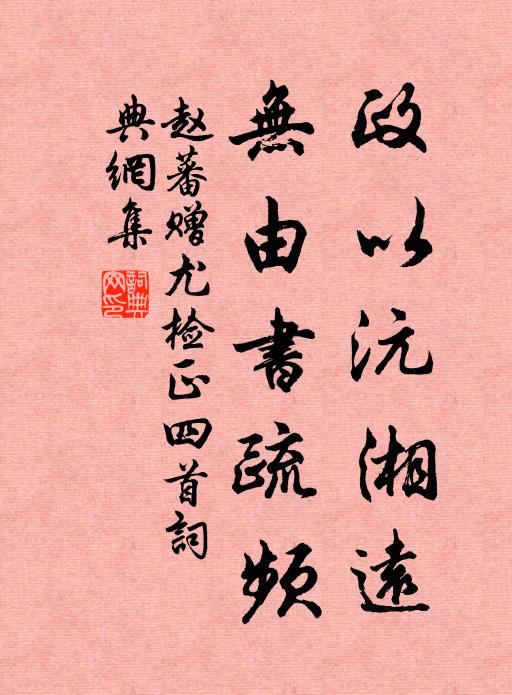 政以沅湘遠
無由書疏頻
赵蕃赠尤检正四首詞
典網集
詞典网印